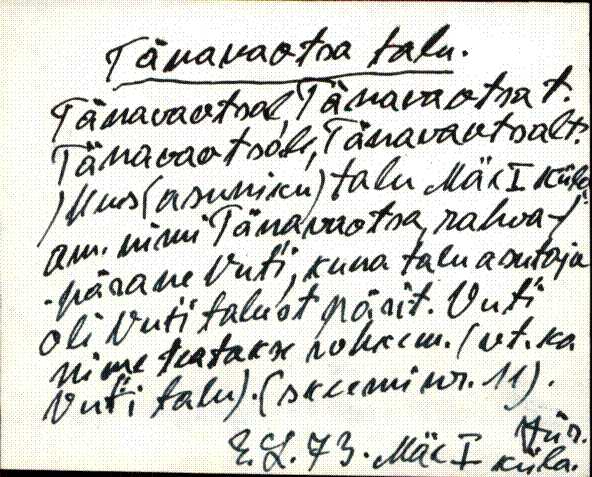 Tänavaotsa talu.
Tänavaotsal, Tänavaotsa t.
Tänavaotsale, Tänavaotsalt.
) Uus (asuniku) talu Mäe I küla
am. nimi Tänavaotsa, rahva-/
-pärane Vuti, kuna talu asutaja
oli Vuti talust pärit. Vuti
nime teatakse rohkem. (vt. ka
Vuti talu). (skeemi nr. 11).
Hür.
E. L. 73. Mäe I küla.